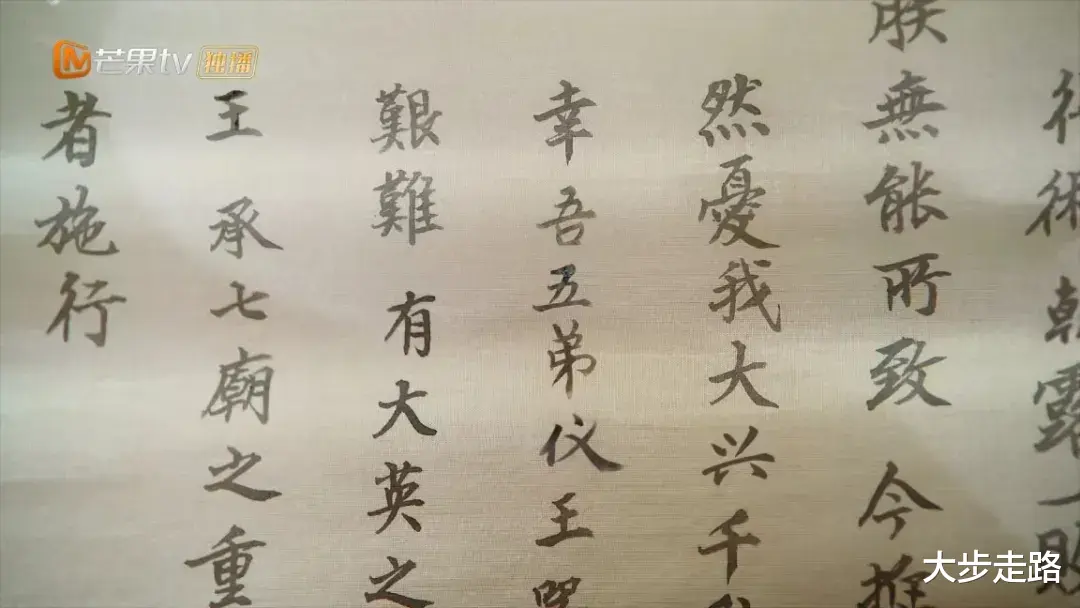 芒果tv 独播
術 朝露一
朕無能所致 今推
然憂我大兴千
幸吾五弟仪王
艱難 有大英之
王 承七廟之重
者施行
大步走路